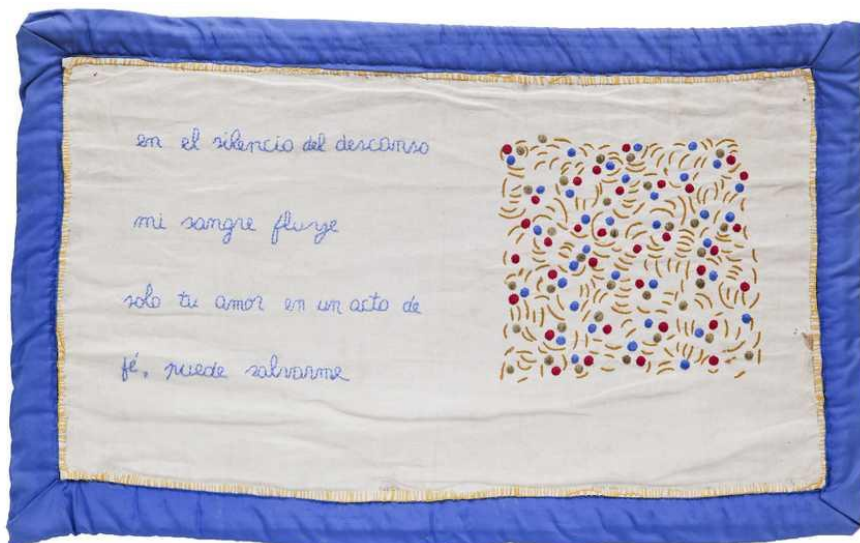 en el silencio del descanso
mi sangre fluye
solo tu amor en un acto de
fé, puede salvarme